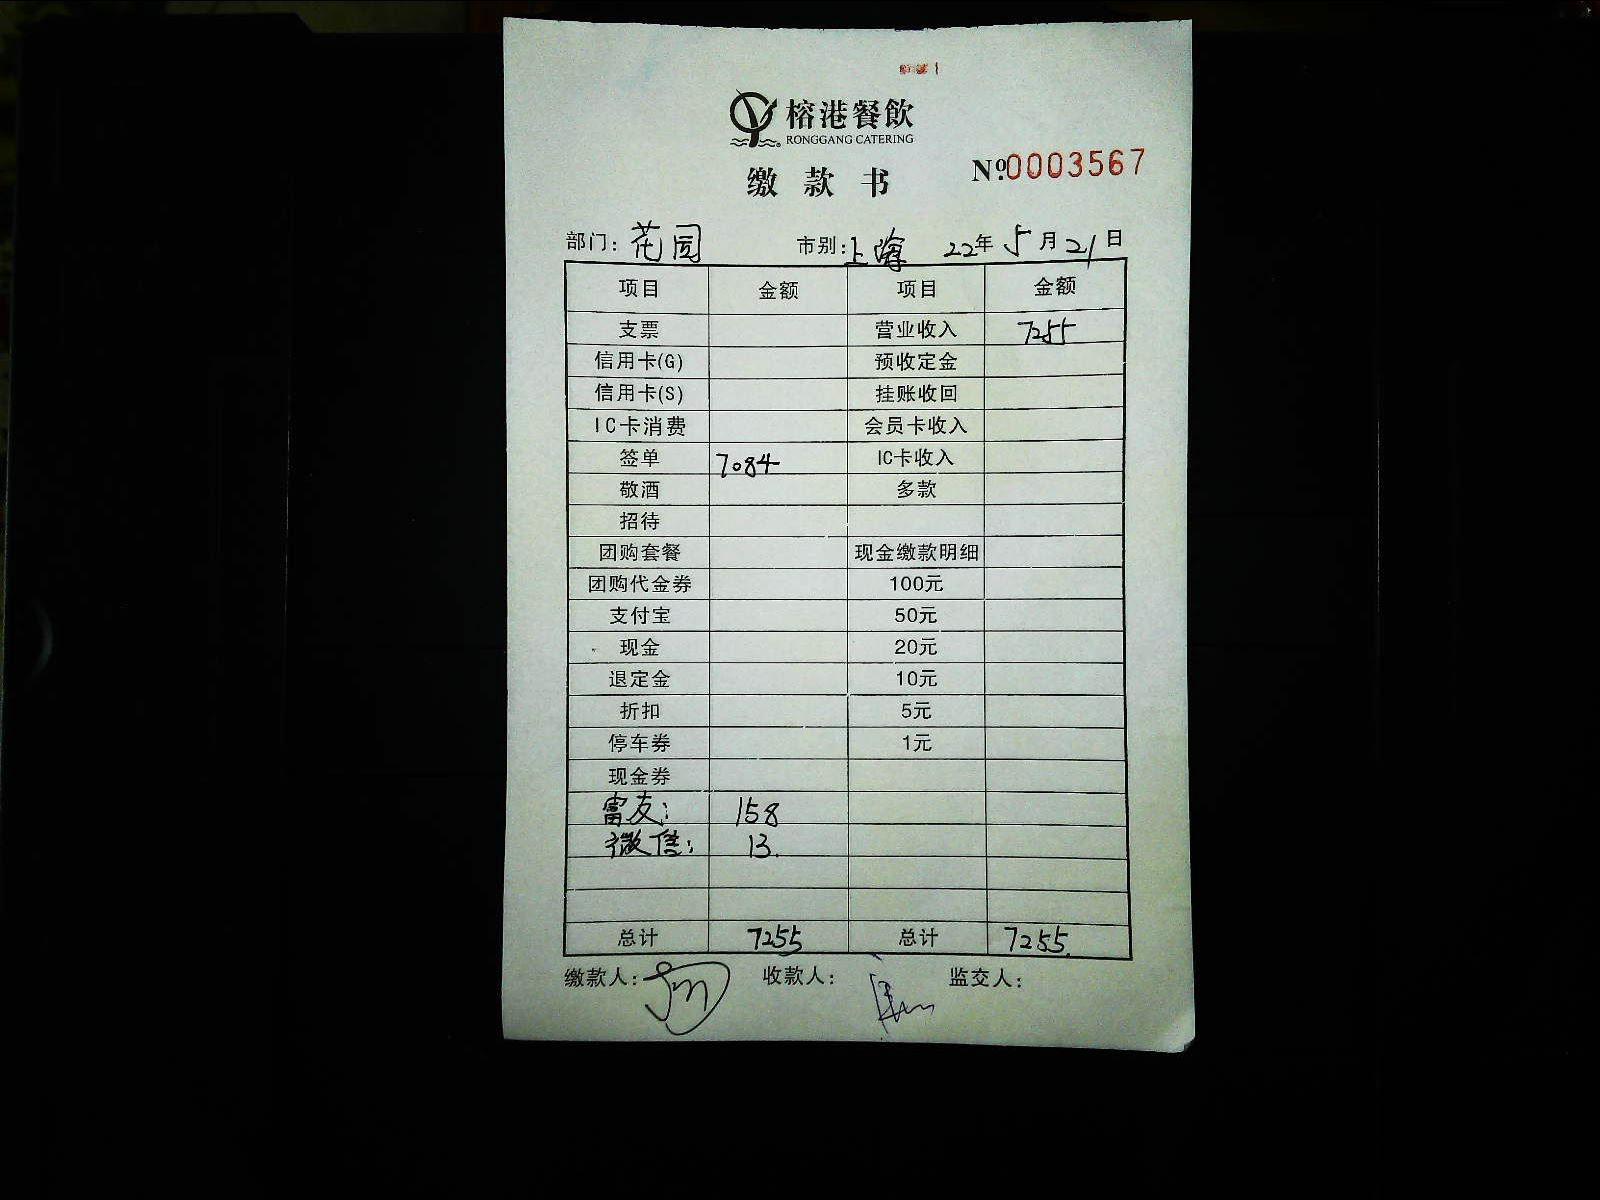 榕港餐飲
RONGGANG CATERING
缴款书
№0003567
部门：花园 市别：上海 22年5月21日
项目 金额 项目 金额
支票 营业收入 7255
信用卡(G) 预收定金
信用卡(S) 挂账收回
IC卡消费 会员卡收入
签单 7084 IC卡收入
敬酒 多款
招待
团购套餐 现金缴款明细
团购代金券 100元
支付宝 50元
现金 20元
退定金 10元
折扣 5元
停车券 1元
现金券
富友： 158
微信： 13.
总计 7255 总计 7255.
缴款人： 收款人： 监交人：